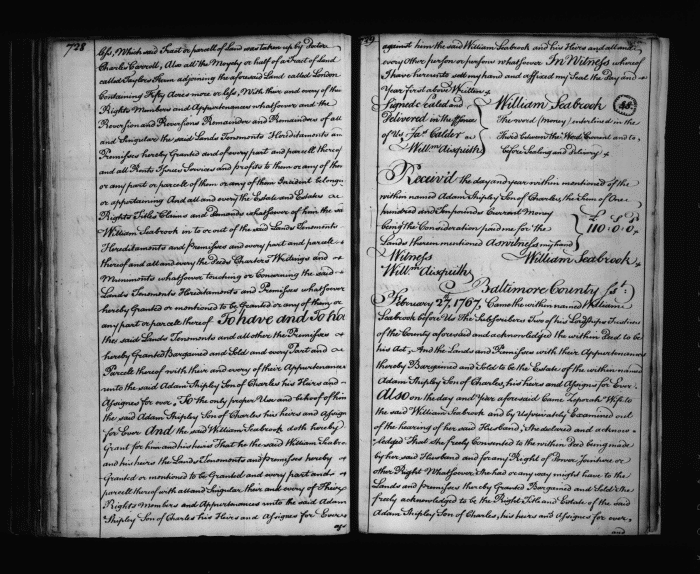 728
less, Which said Tract or parcell of Land was taken up by Doctor
Charles Carroll, Also all the Moyety or half of a Tract of Land
called Taylors Farm adjoining the aforesaid Land called London
Containing Fifty Acres more or less, With there and every of their
Rights Members and Appurtenances whatsoever and the
Reversion and Reversions Remainder and Remainders of all
and Singular the said Lands Tenements Hereditaments an
Premisses hereby Granted and of every part and parcell thereof
and all Rents Issues Services and profits to them or any of them
or any part or parcell of them or any of them Incident belongin
or appertaining And all and every the Estate and Estates
Rights Titles Claims and Demands whatsoever of him the sai
William Seabrook in to or out of the said Lands Tenements
Hereditaments and Premisses and every part and parcell
thereof and all and every the Deeds Charters Writings and
Muniments whatsoever touching or Concerning the said
Lands Tenements Hereditaments and Premisses whatsoever
hereby Granted or mentioned to be Granted or any of them or
any part or parcell thereof To have and To hol
the said Lands Tenements and all other the Premisses
hereby Granted Bargained and Sold and every Part and
Parcell thereof with their and every of their Appurtenances
unto the said Adam Shipley Son of Charles his Heirs and
Assignes for ever, To the only proper Use and behoof of him
the said Adam Shipley Son of Charles his heirs and Assigns
for Ever And the said William Seabrook doth hereby
Grant for him and his heirs That he the said William Seabro
and his heirs the Lands Tenements and premisses hereby
Granted or mentioned to be Granted and every part and
parcell thereof with all and Singular their and every of Their
Rights Members and Appurtenances unto the said Adam
Shipley Son of Charles his Heirs and Assignes for Ever
against him the said William Seabrook and his Heirs and all and
every other person or persons whatsoever In Witness whereof
I have hereunto set my hand and affixed my Seal the Day and
Year first above Written
Signed Sealed and
Delivered in the presence
of Us Jas. Calder
Willm. Aisquith
William Seabrook
The word (Money) interlined in the
Third Column the Word Current and to
before Sealing and Delivery
Received the day and year within mentioned of the
within named Adam Shipley Son of Charles the Sum of One
hundred and Ten pounds Current Money
being the Consideration paid me for the
Lands therein mentioned As witness my hand
£ S D
110.0.0
Witness
William Seabrook
Willm. Aisquith
Baltimore County Sst.
February 2d. 1767, Came the within named William
Seabrook before Us the Subscribers Two of his Lordships Justices
of the County aforesaid and acknowledged the within Deed to be
his Act, And the Lands and Premisses with their Appurtenances
thereby Bargained and Sold to be the Estate of the within named
Adam Shipley Son of Charles, his heirs and Assigns for Ever.
Also on the day and Year aforesaid Came Jeprah Wife to
the said William Seabrook and by Us privately Examined out
of the hearing of her said Husband, She declared and acknow-
ledged That she freely Consented to the within Deed being made
by her said Husband and for any Right of Dower Jointure or
other Right Whatsoever She had or any way might have to the
Lands and premisses thereby Granted Bargained and Sold She
freely acknowledged to be the Right Title and Estate of the said
Adam Shipley Son of Charles, his heirs and Assignes for ever,
and